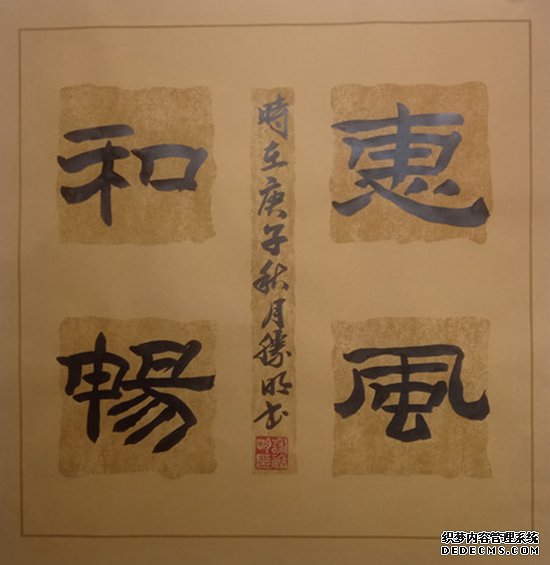 惠風
和暢
時在庚子秋月勝明书
织梦内容管理系统
DEDECMS.COM